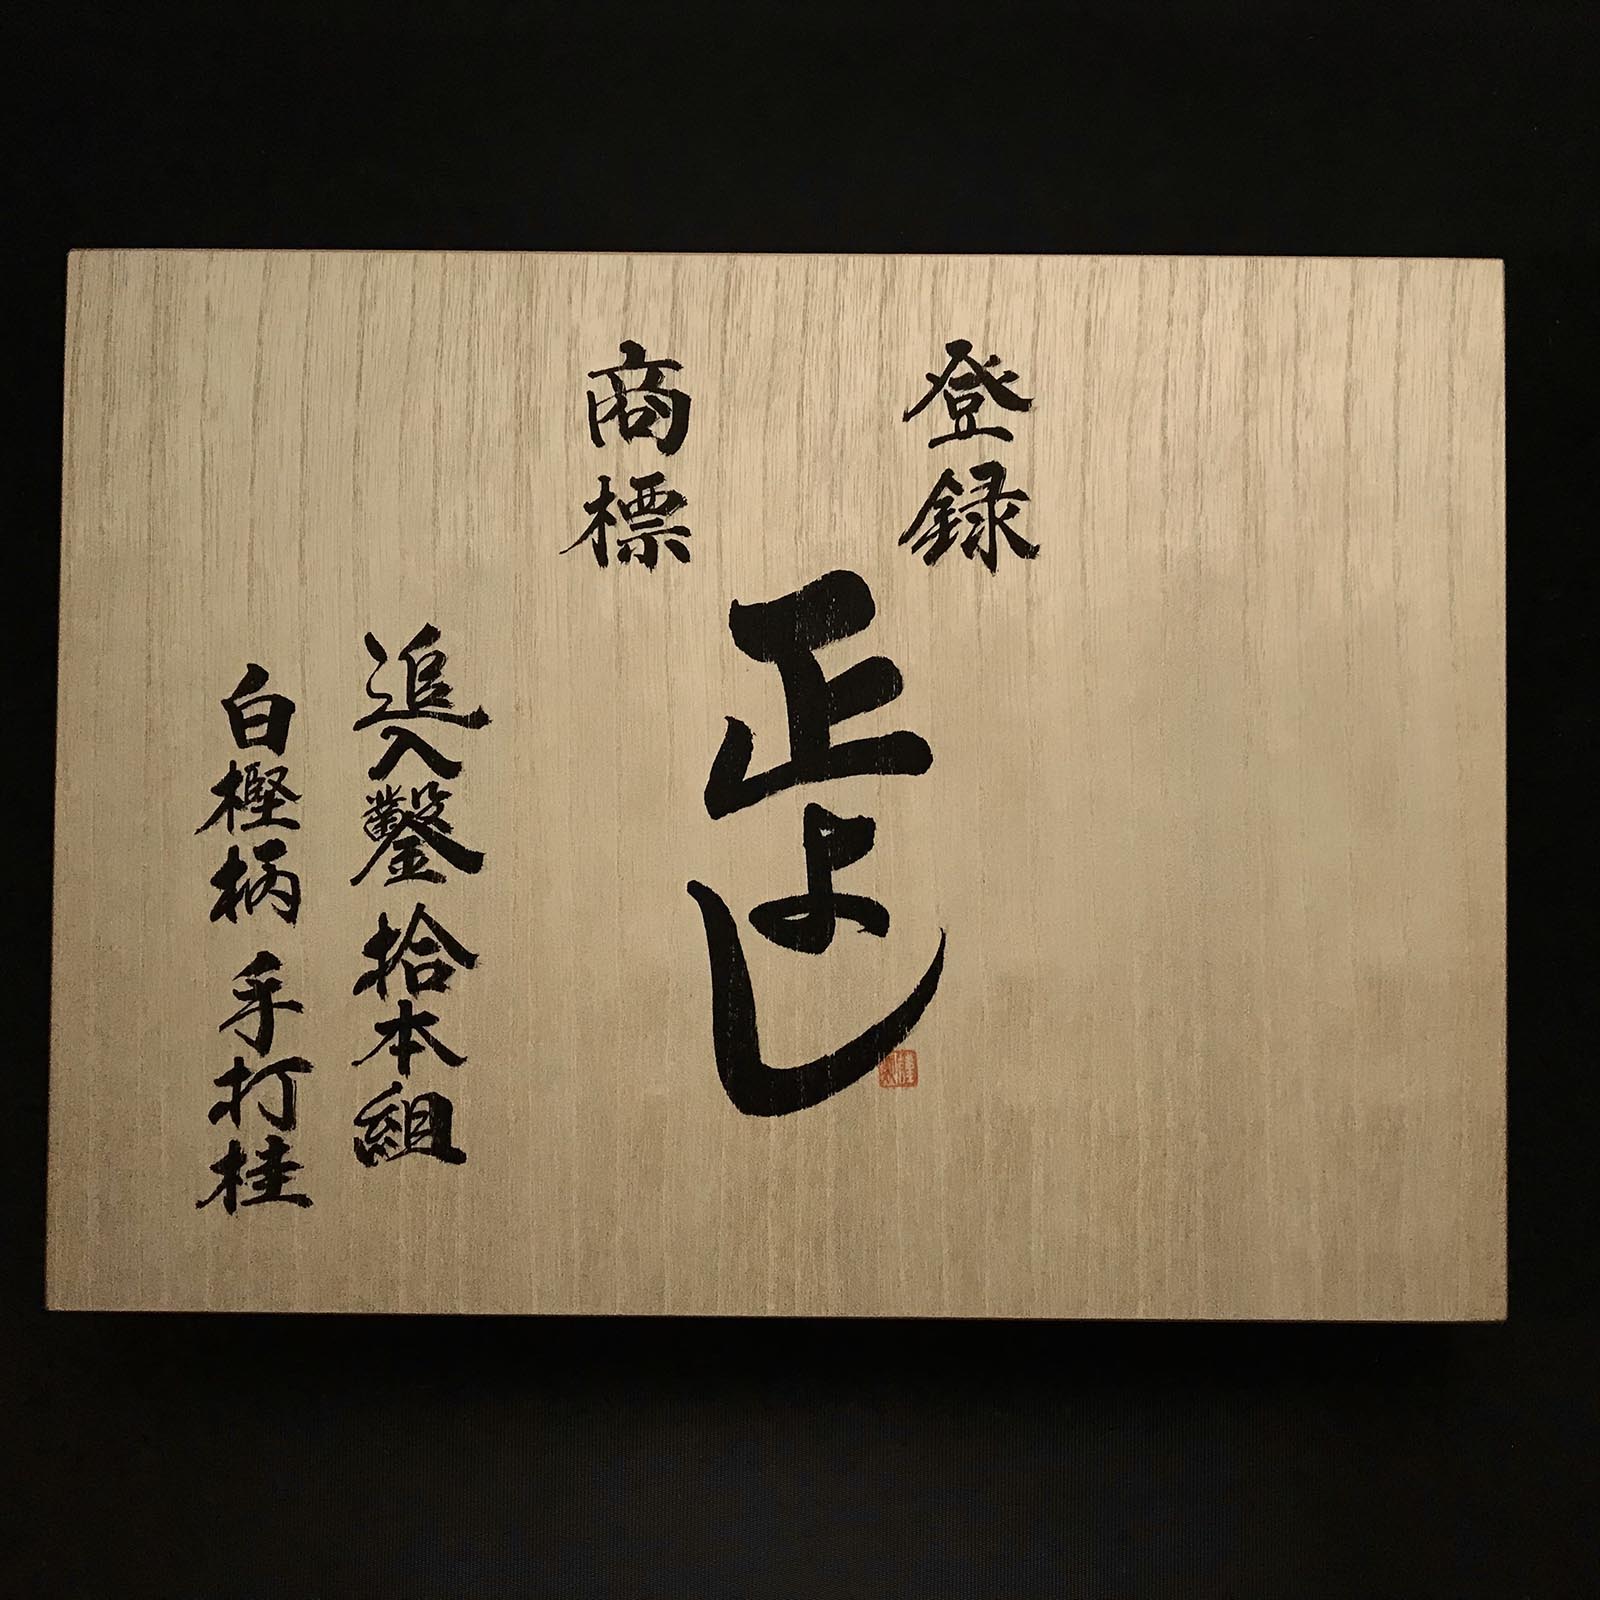 登録
商標
正よし
追入鑿 拾本組
白樫柄 手打桂